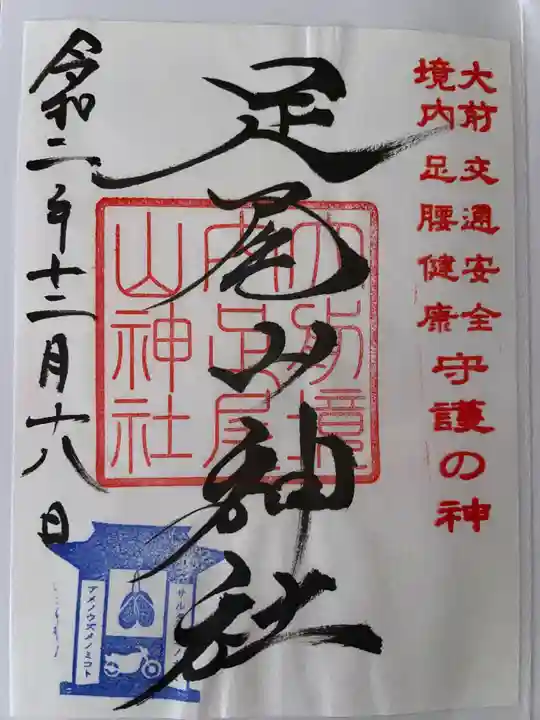 大前 交通安全
境内 足腰健康
守護の神
足尾山神社
大前境
内足尾
山神社
令和二年十二月十八日
アメノウズメノミコト